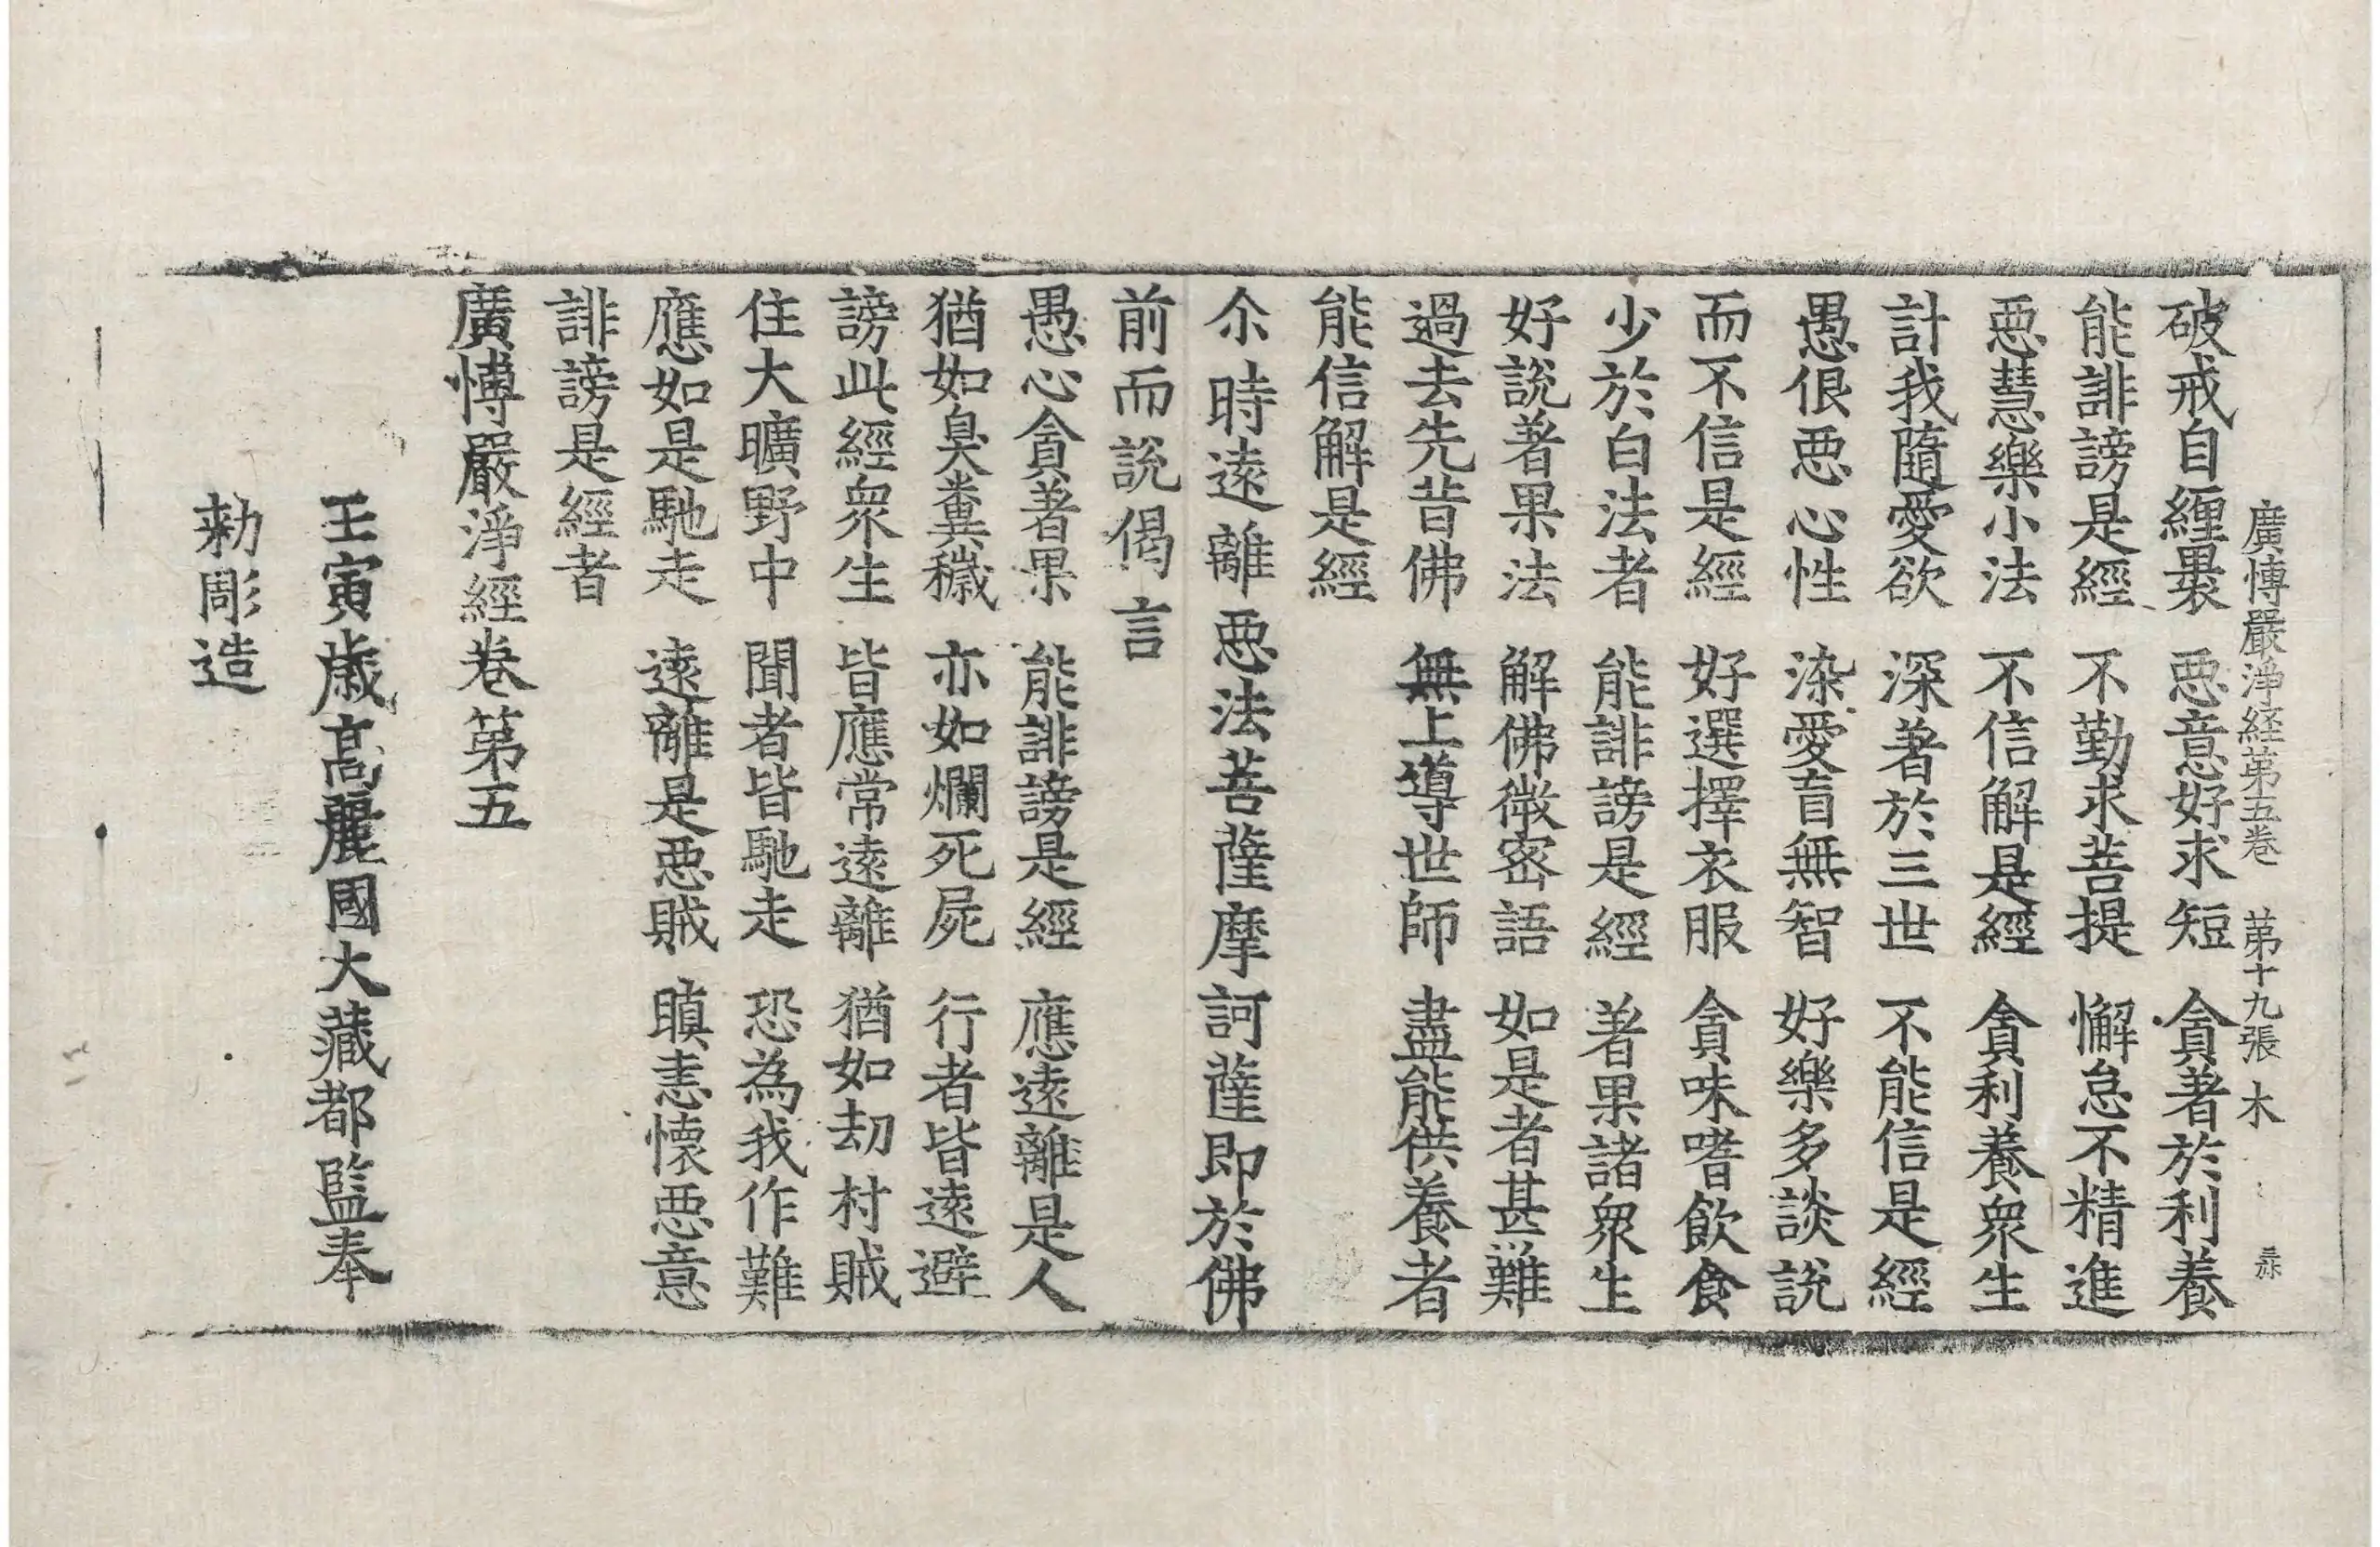 廣博嚴淨経第五卷 第十九張 木
破戒自纏褁 惡意好求短 貪著於利養
能誹謗是經 不勤求菩提 懈怠不精進
惡慧樂小法 不信解是經 貪利養衆生
計我隨愛欲 深著於三世 不能信是經
愚很惡心性 染愛盲無智 好樂多談說
而不信是經 好選擇衣服 貪味嗜飮食
少於白法者 能誹謗是經 著果諸衆生
好說著果法 解佛微密語 如是者甚難
過去先昔佛 無上導世師 盡能供養者
能信解是經
尒時遠離惡法菩薩摩訶薩即於佛
前而說偈言
愚心貪著果 能誹謗是經 應遠離是人
猶如臭糞穢 亦如爛死屍 行者皆遠避
謗此經衆生 皆應常遠離 猶如劫村賊
住大曠野中 聞者皆馳走 恐為我作難
應如是馳走 遠離是惡賊 瞋恚懷惡意
誹謗是經者
廣博嚴淨經卷第五
壬寅歳高麗國大藏都監奉
勑彫造